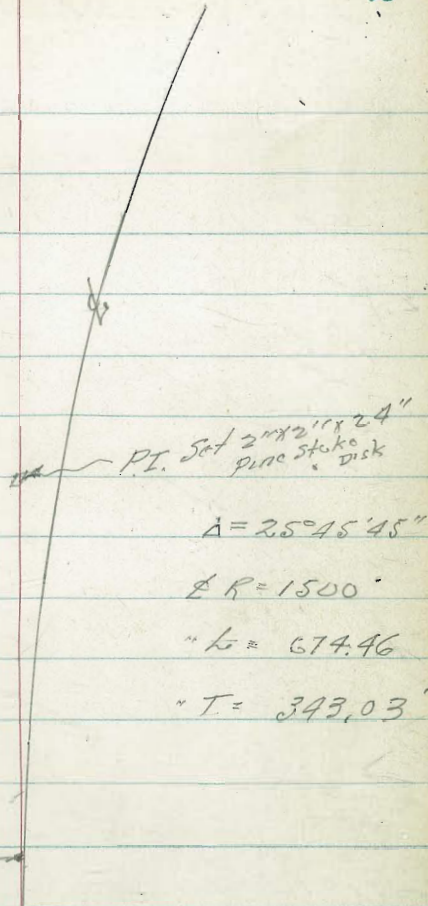 P.I. Set 2"x2"x24"
Pine Stake
Disk
Δ = 25°45'45"
℄ R = 1500
" L = 674.46
" T = 343.03'